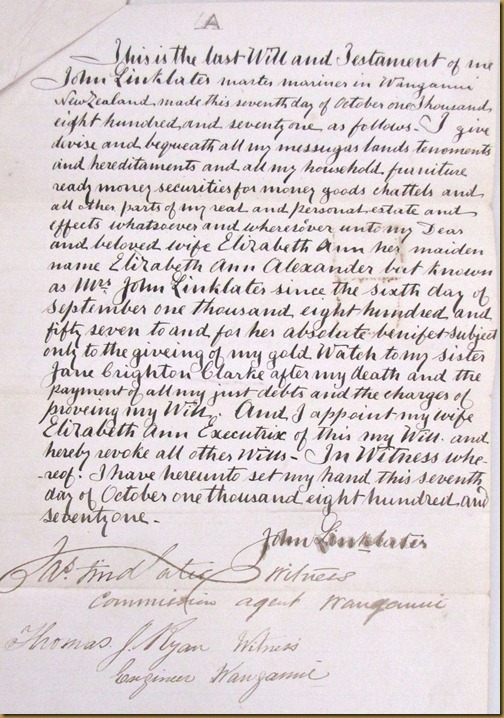 A
This is the last Will and Testament of me
John Linklater master mariner in Wanganui
New Zealand made this seventh day of October one Thousand
eight hundred and seventy one as follows - I give
divise and bequeath all my messugas lands tenements
and hereditaments and all my household furniture
ready money securities for money goods chattels and
all other parts of my real and personal estate and
effects whatsoever and wheresover unto my Dear
and beloved wife Elizabeth Ann her maiden
name Elizabeth Ann Alexander but known
as Mrs John Linklater since the sixth day of
september one thousand eight hundred and
fifty seven to and for her absolute benifet subject
only to the giveing of my gold Watch to my sister
Jane Crighton Clarke after my death and the
payment of all my just debts and the charges of
proveing my Will. And I appoint my wife
Elizabeth Ann Executrix of this my Will. and
hereby revoke all other Wills - In Witness whe
-reof. I have hereunto set my hand this seventh
day of October one thousand eight hundred and
seventy one -
John Linklater
Jas. Witness
Commission agent Wanganui
Thomas J. Ryan Witness
Engineer Wanganui